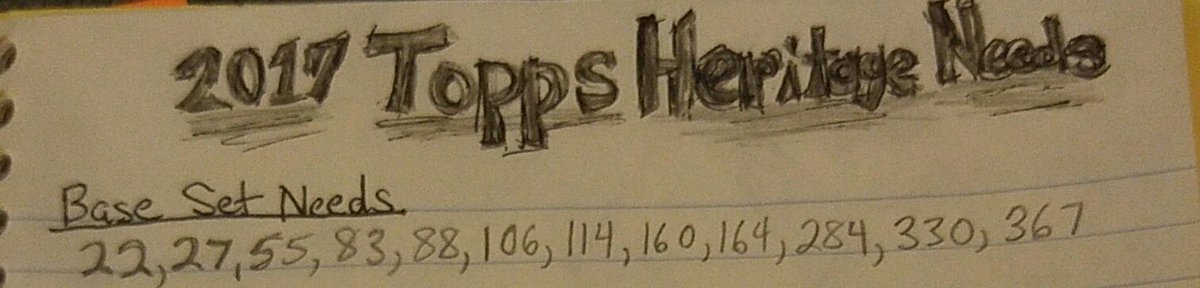 2017 Topps Heritage Needs
Base Set Needs
22, 27, 55, 83, 88, 106, 114, 160, 164, 284, 330, 367